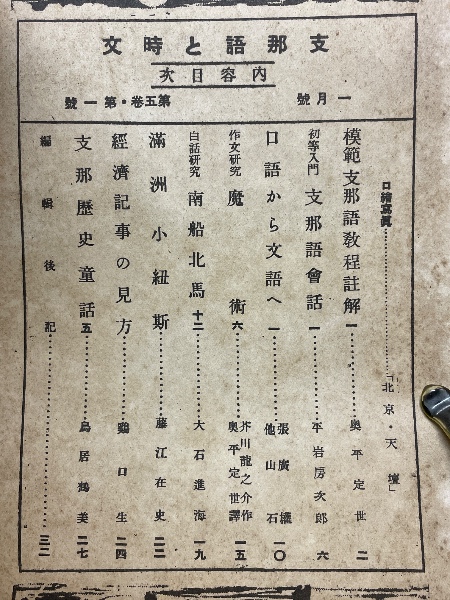 支那語と時文
内容目次
第五巻・第一號
一月號
口繪寫眞…………「北京・天壇」
模範支那語敎程註解 一…………奥平定世 二
初等入門 支那語會話 一…………平岩房次郎 六
口語から文語へ 一…………張廣權 他山石 一〇
作文研究 魔術 六…………芥川龍之介作 奥平定世譯 一五
白話研究 南船北馬 十二…………大石進海 一九
滿洲小紐斯…………藤江在史 二二
經濟記事の見方…………鷄口生 二四
支那歷史童話 五…………鳥居鶴美 二七
編輯後記…………三二